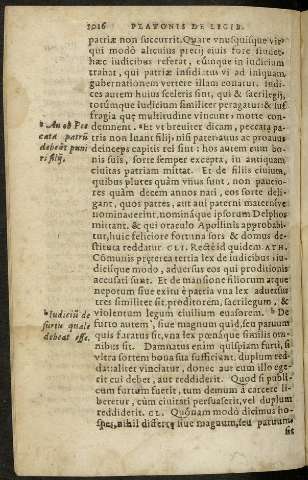 1016 PLATONIS DE LEGIB.
patriæ non succurrit. Quare vnusquisque vir
qui modò alicuius precij eius fore studet,
hæc iudicibus referat, eumque in iudicium
trahat, qui patriæ insidiatus vi ad iniquam
gubernationem vertere illam conatur. Iudi-
ces autem huius sceleris sint, qui & sacrilegij,
totúmque iudicium similiter peragatur: & suf-
fragia quæ multitudine vincunt, morte con-
b An ob Pec demnent. b Et vt breuiter dicam, peccata pa-
cata patris tris non luant filij: nisi pater auus ac proauus
debeāt puni deinceps capitis rei sint: hos autem cum bo-
ri filij. nis suis, sorte semper excepta, in antiquam
ciuitas patriam mittat. Et de filiis ciuium,
quibus plures quàm vnus sunt, non paucio-
res quàm decem annos nati, eos sorte deli-
gant, quos patres, aut aui paterni maternive
nominauerint, nominá que ipsorum Delphos
mittant, & qui oraculo Apollinis approbabi-
tur, huic feliciore fortuna sors & domus de-
stituta reddatur CLI. Recté id quidem. ATH.
Cōmunis præterea tertia lex de iudicibus iu-
diciisque modo, aduersus eos qui proditionis
accusati sunt. Et de mansione filiorum atque
nepotum siue exitu è patria vna lex aduersus
tres similiter sit, proditorem, sacrilegum, &
b Iudiciū de violentum legum ciuilium euasorem. b De
furtis quale furto autem, siue magnum quid, seu paruum
debeat esse. quis furatus sit, vna lex pœnáque similis om-
nibus sit. Damnatus enim quispiam furti, si
vltra sortem bona sua sufficiant, duplum red-
dat: aliter vinciatur, donec aut eum illo ege-
rit cui debet, aut reddiderit. Quod si publi-
cum furtum fuerit, tum demum à carcere li-
beretur, cum ciuitati persuaserit, vel duplum
reddiderit. CL. Quónam modò dicimus ho-
spes, nihil differre siue magnum, seu paruum
sit